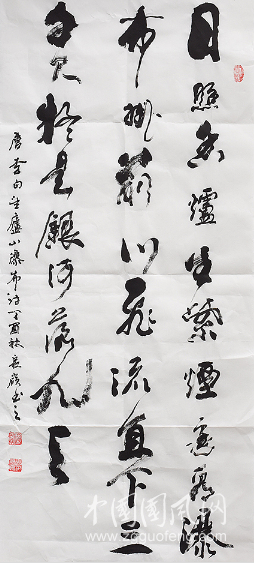 日照香爐生紫煙遙看瀑
布掛前川飛流直下三
千尺疑是銀河落九天
唐李白望廬山瀑布詩丁酉秋書之
中国国风网
www.zgguofeng.com